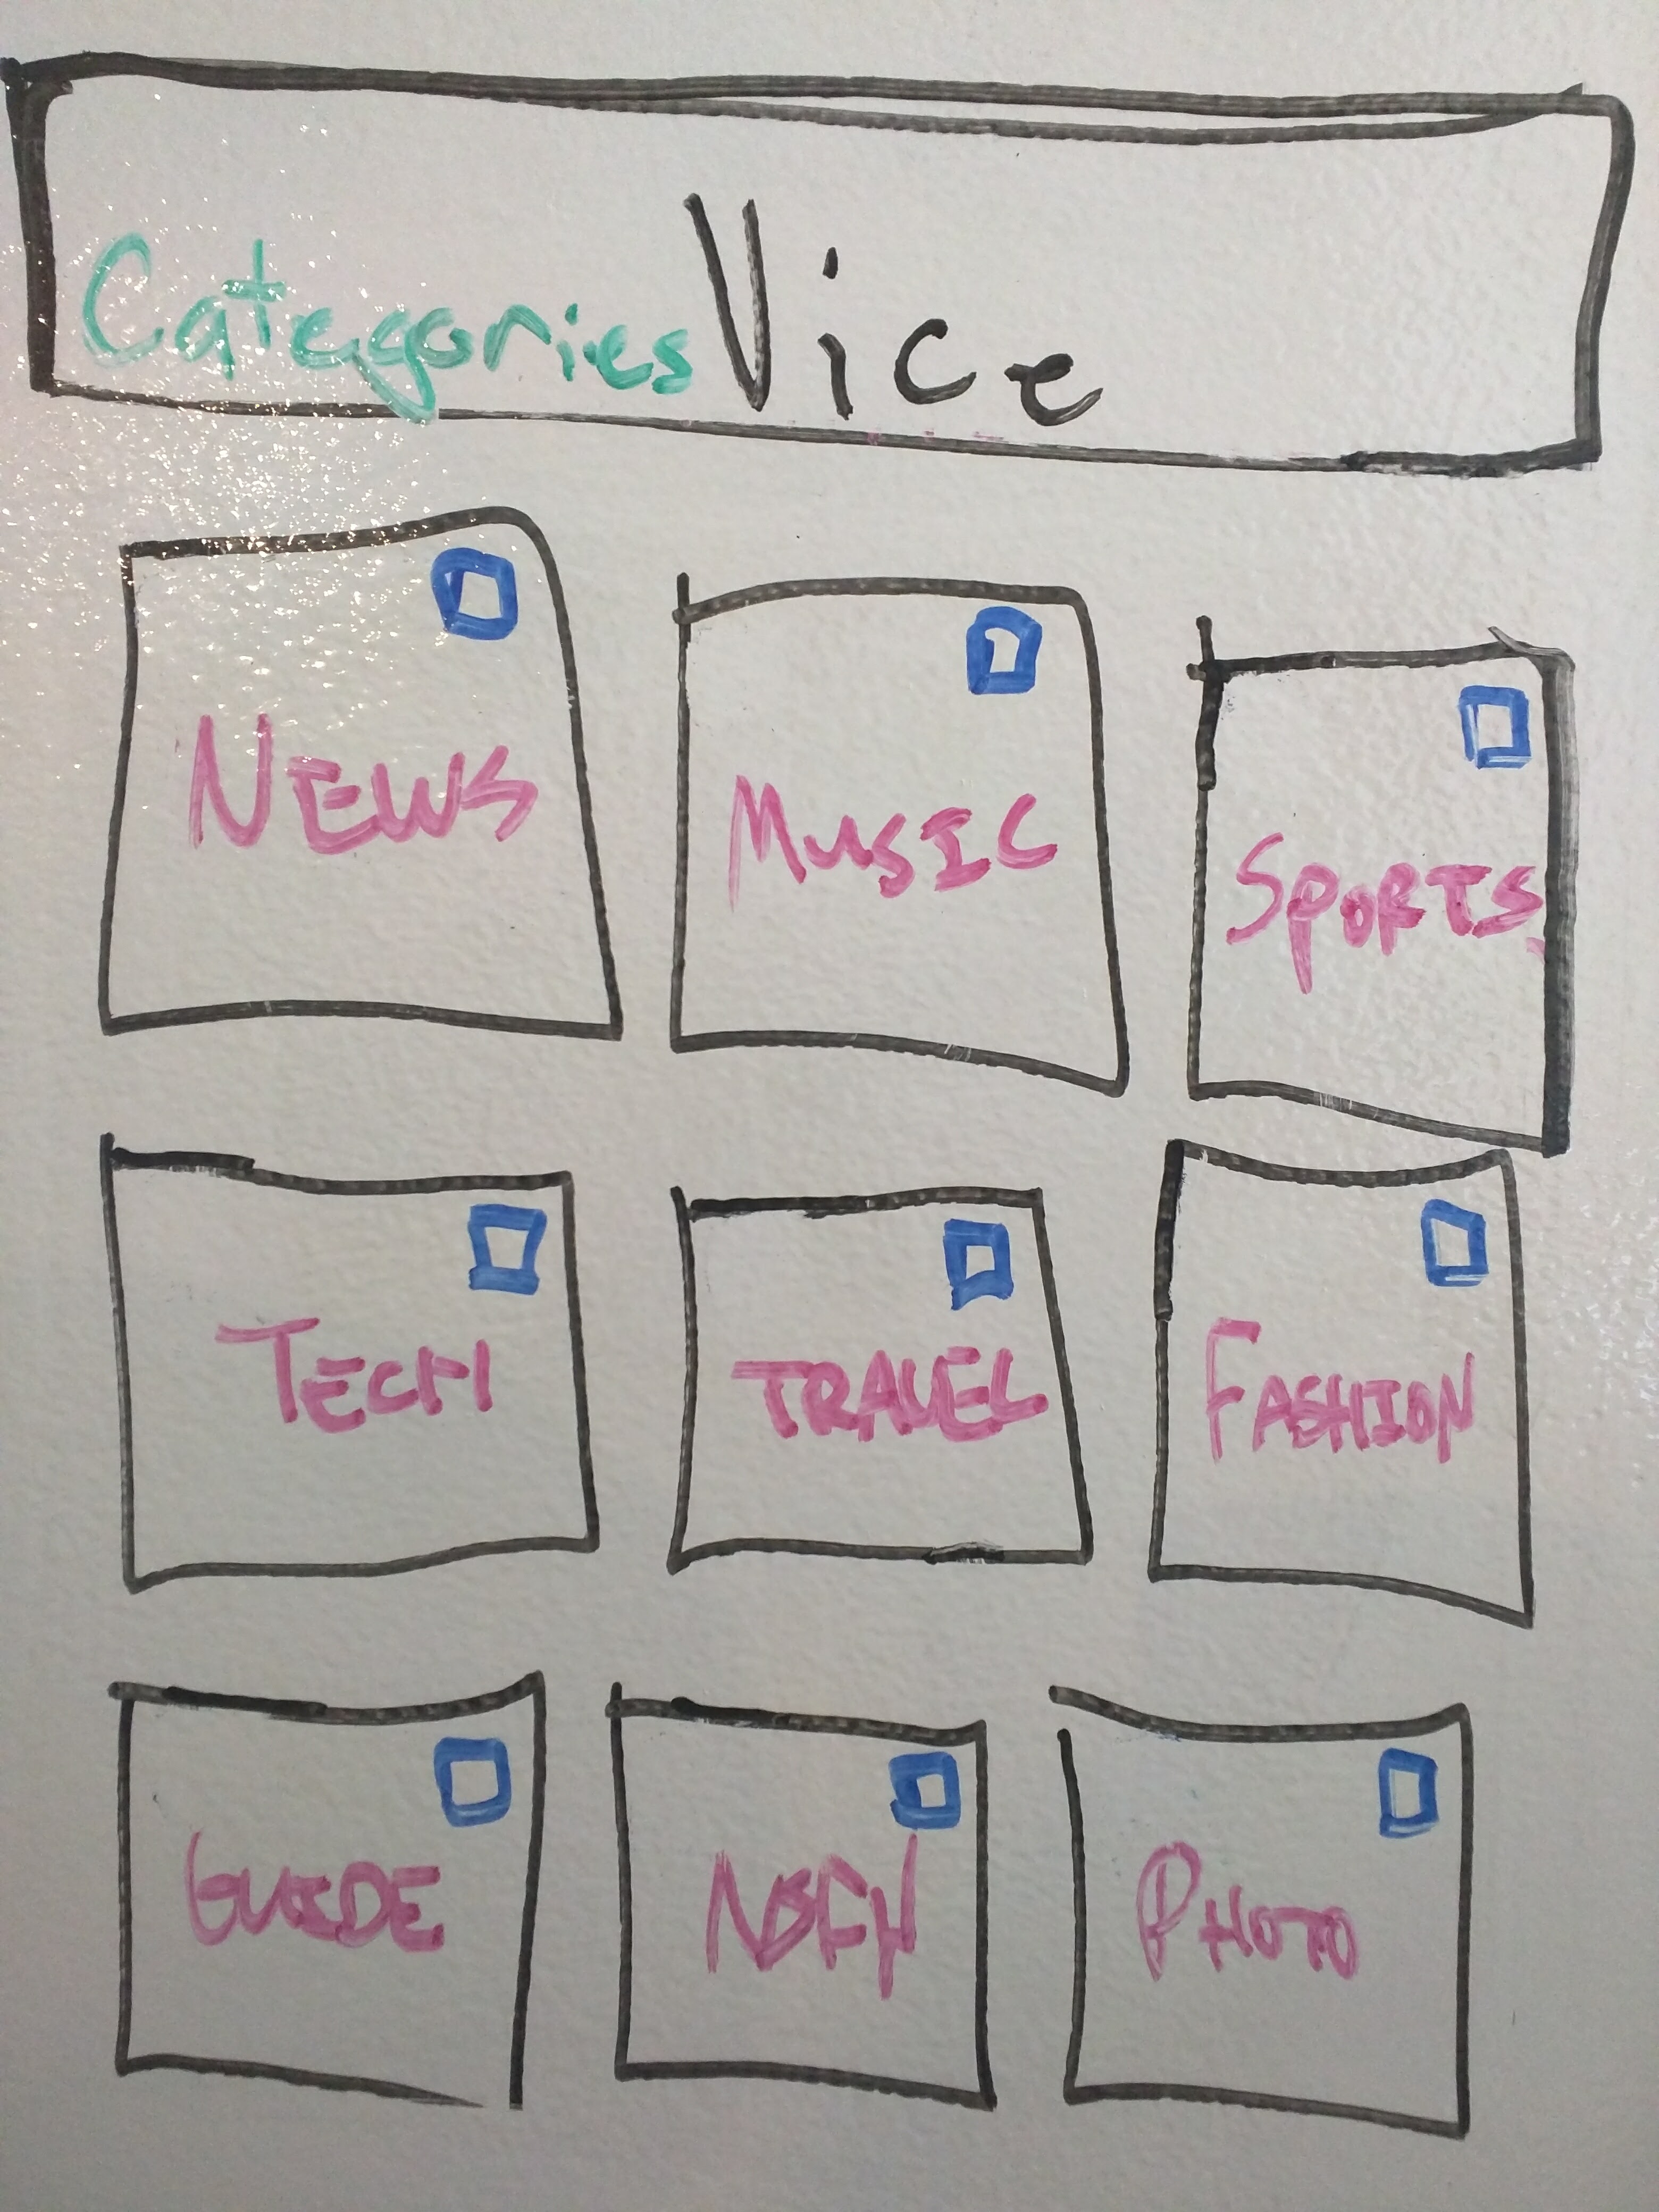 Categories Vice
NEWS
MUSIC
SPORTS
TECH
TRAVEL
FASHION
GUIDE
NSFW
PHOTO